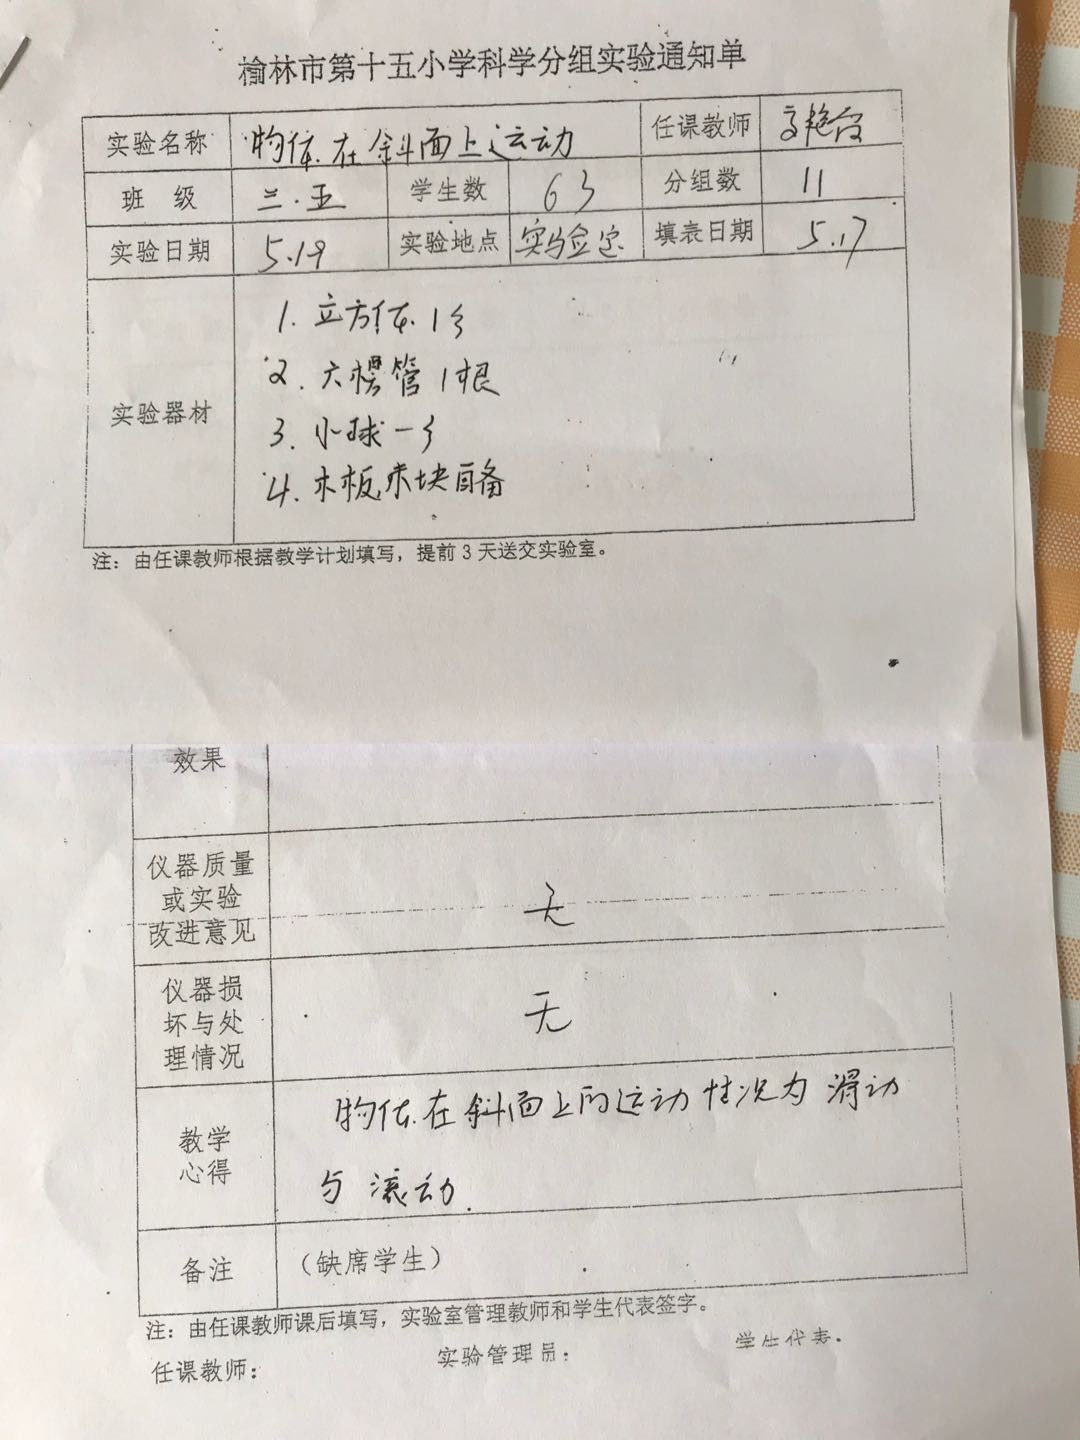 榆林市第十五小学科学分组实验通知单
实验名称 物体在斜面上运动 任课教师 高艳霞
班 级 三.五 学生数 63 分组数 11
实验日期 5.19 实验地点 实验室 填表日期 5.17
实验器材
1. 立方体1个
2. 六楞管1根
3. 小球一个
4. 木板木块自备
注：由任课教师根据教学计划填写，提前3天送交实验室。
效果
仪器质量
或实验 无
改进意见
仪器损
坏与处 无
理情况
物体在斜面上的运动情况为滑动
教学
心得
与滚动.
备注 （缺席学生）
注：由任课教师课后填写，实验室管理教师和学生代表签字。
任课教师： 实验管理员： 学生代表：